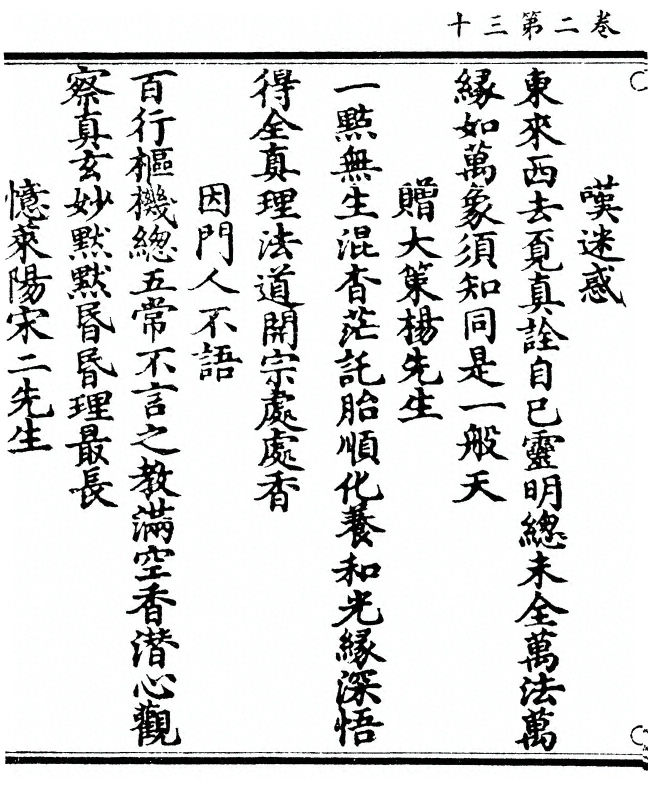 卷二第三十
嘆迷惑
東來西去覓真詮自己靈明總未全萬法萬
緣如萬象須知同是一般天
贈大策楊先生
一點無生混杳茫託胎順化養和光緣深悟
得全真理法道開宗處處香
因門人不語
百行樞機總五常不言之教滿空香潛心觀
察真玄妙默默昏昏理最長
憶萊陽宋二先生